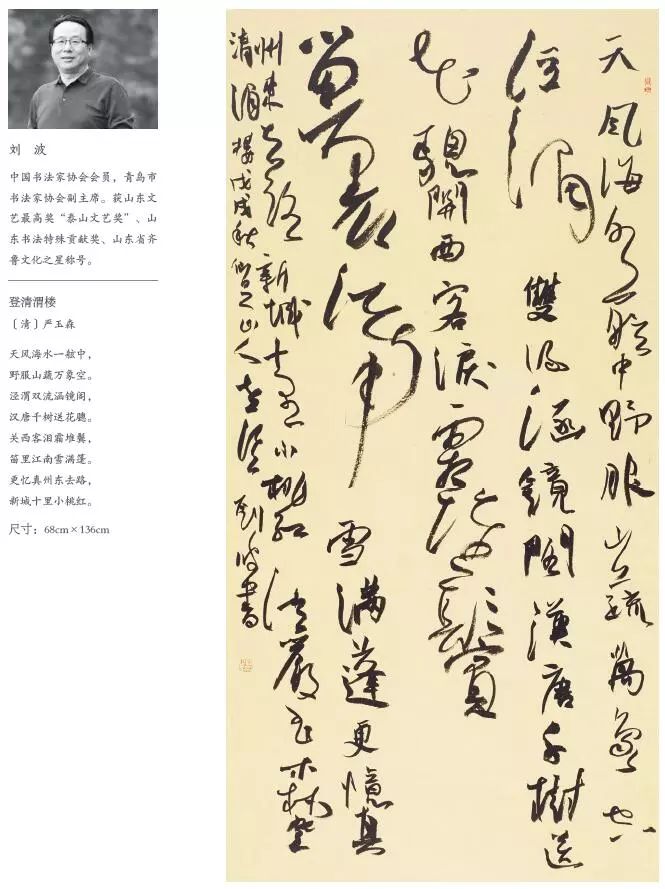 刘 波
中国书法家协会会员，青岛市
书法家协会副主席。获山东文
艺最高奖“泰山文艺奖”、山
东书法特殊贡献奖、山东省齐
鲁文化之星称号。
登清渭楼
〔清〕严玉森
天风海水一舷中，
野服山蔬万象空。
泾渭双流涵镜阔，
汉唐千树送花骢。
关西客泪霜堆鬓，
笛里江南雪满篷。
更忆真州东去路，
新城十里小桃红。
尺寸：68cm×136cm
天風海水一舷中野服山蔬萬象空
涇渭雙流涵鏡闊漢唐千樹送
花驄關西客淚霜堆鬢
笛裏江南雪滿蓬更憶真
州東去路新城十里小桃紅清嚴玉森登
清渭樓戊戌秋山人劉波書